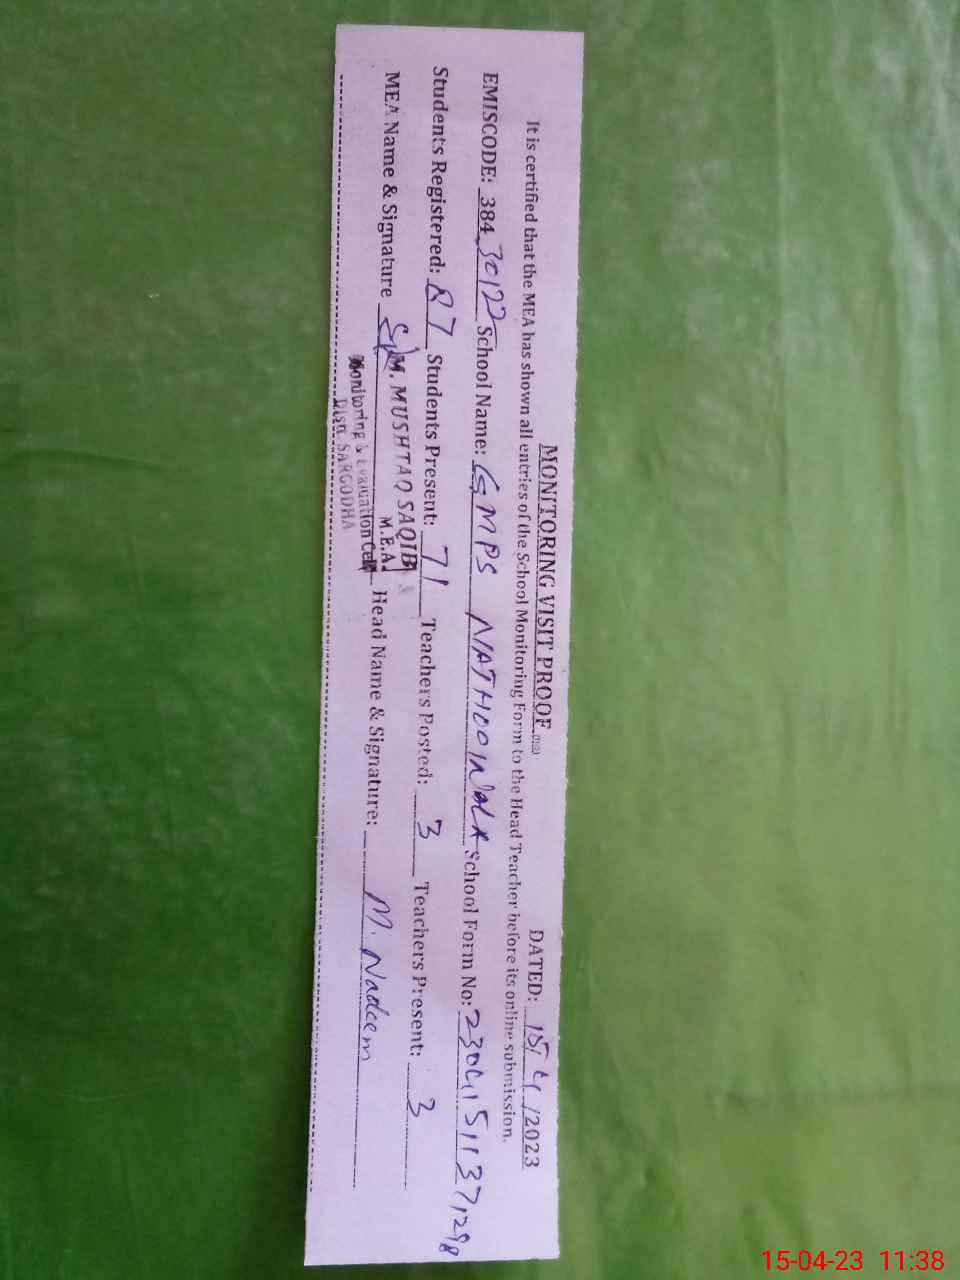 MONITORING VISIT PROOF DATED: 15/4/2023
It is certified that the MEA has shown all entries of the School Monitoring Form to the Head Teacher before its online submission.
EMISCODE: 384 30122 School Name: GMPS NATHOOWALA School Form No:
Students Registered: 87 Students Present: 71 Teachers Posted: 3 Teachers Present: 3
MEA Name & Signature Head Name & Signature: M. Nadeem
M. MUSHTAQ SAQIB
M.E.A.
Monitoring & Evaluation Cell
Distt. SARGODHA
15-04-23 11:38